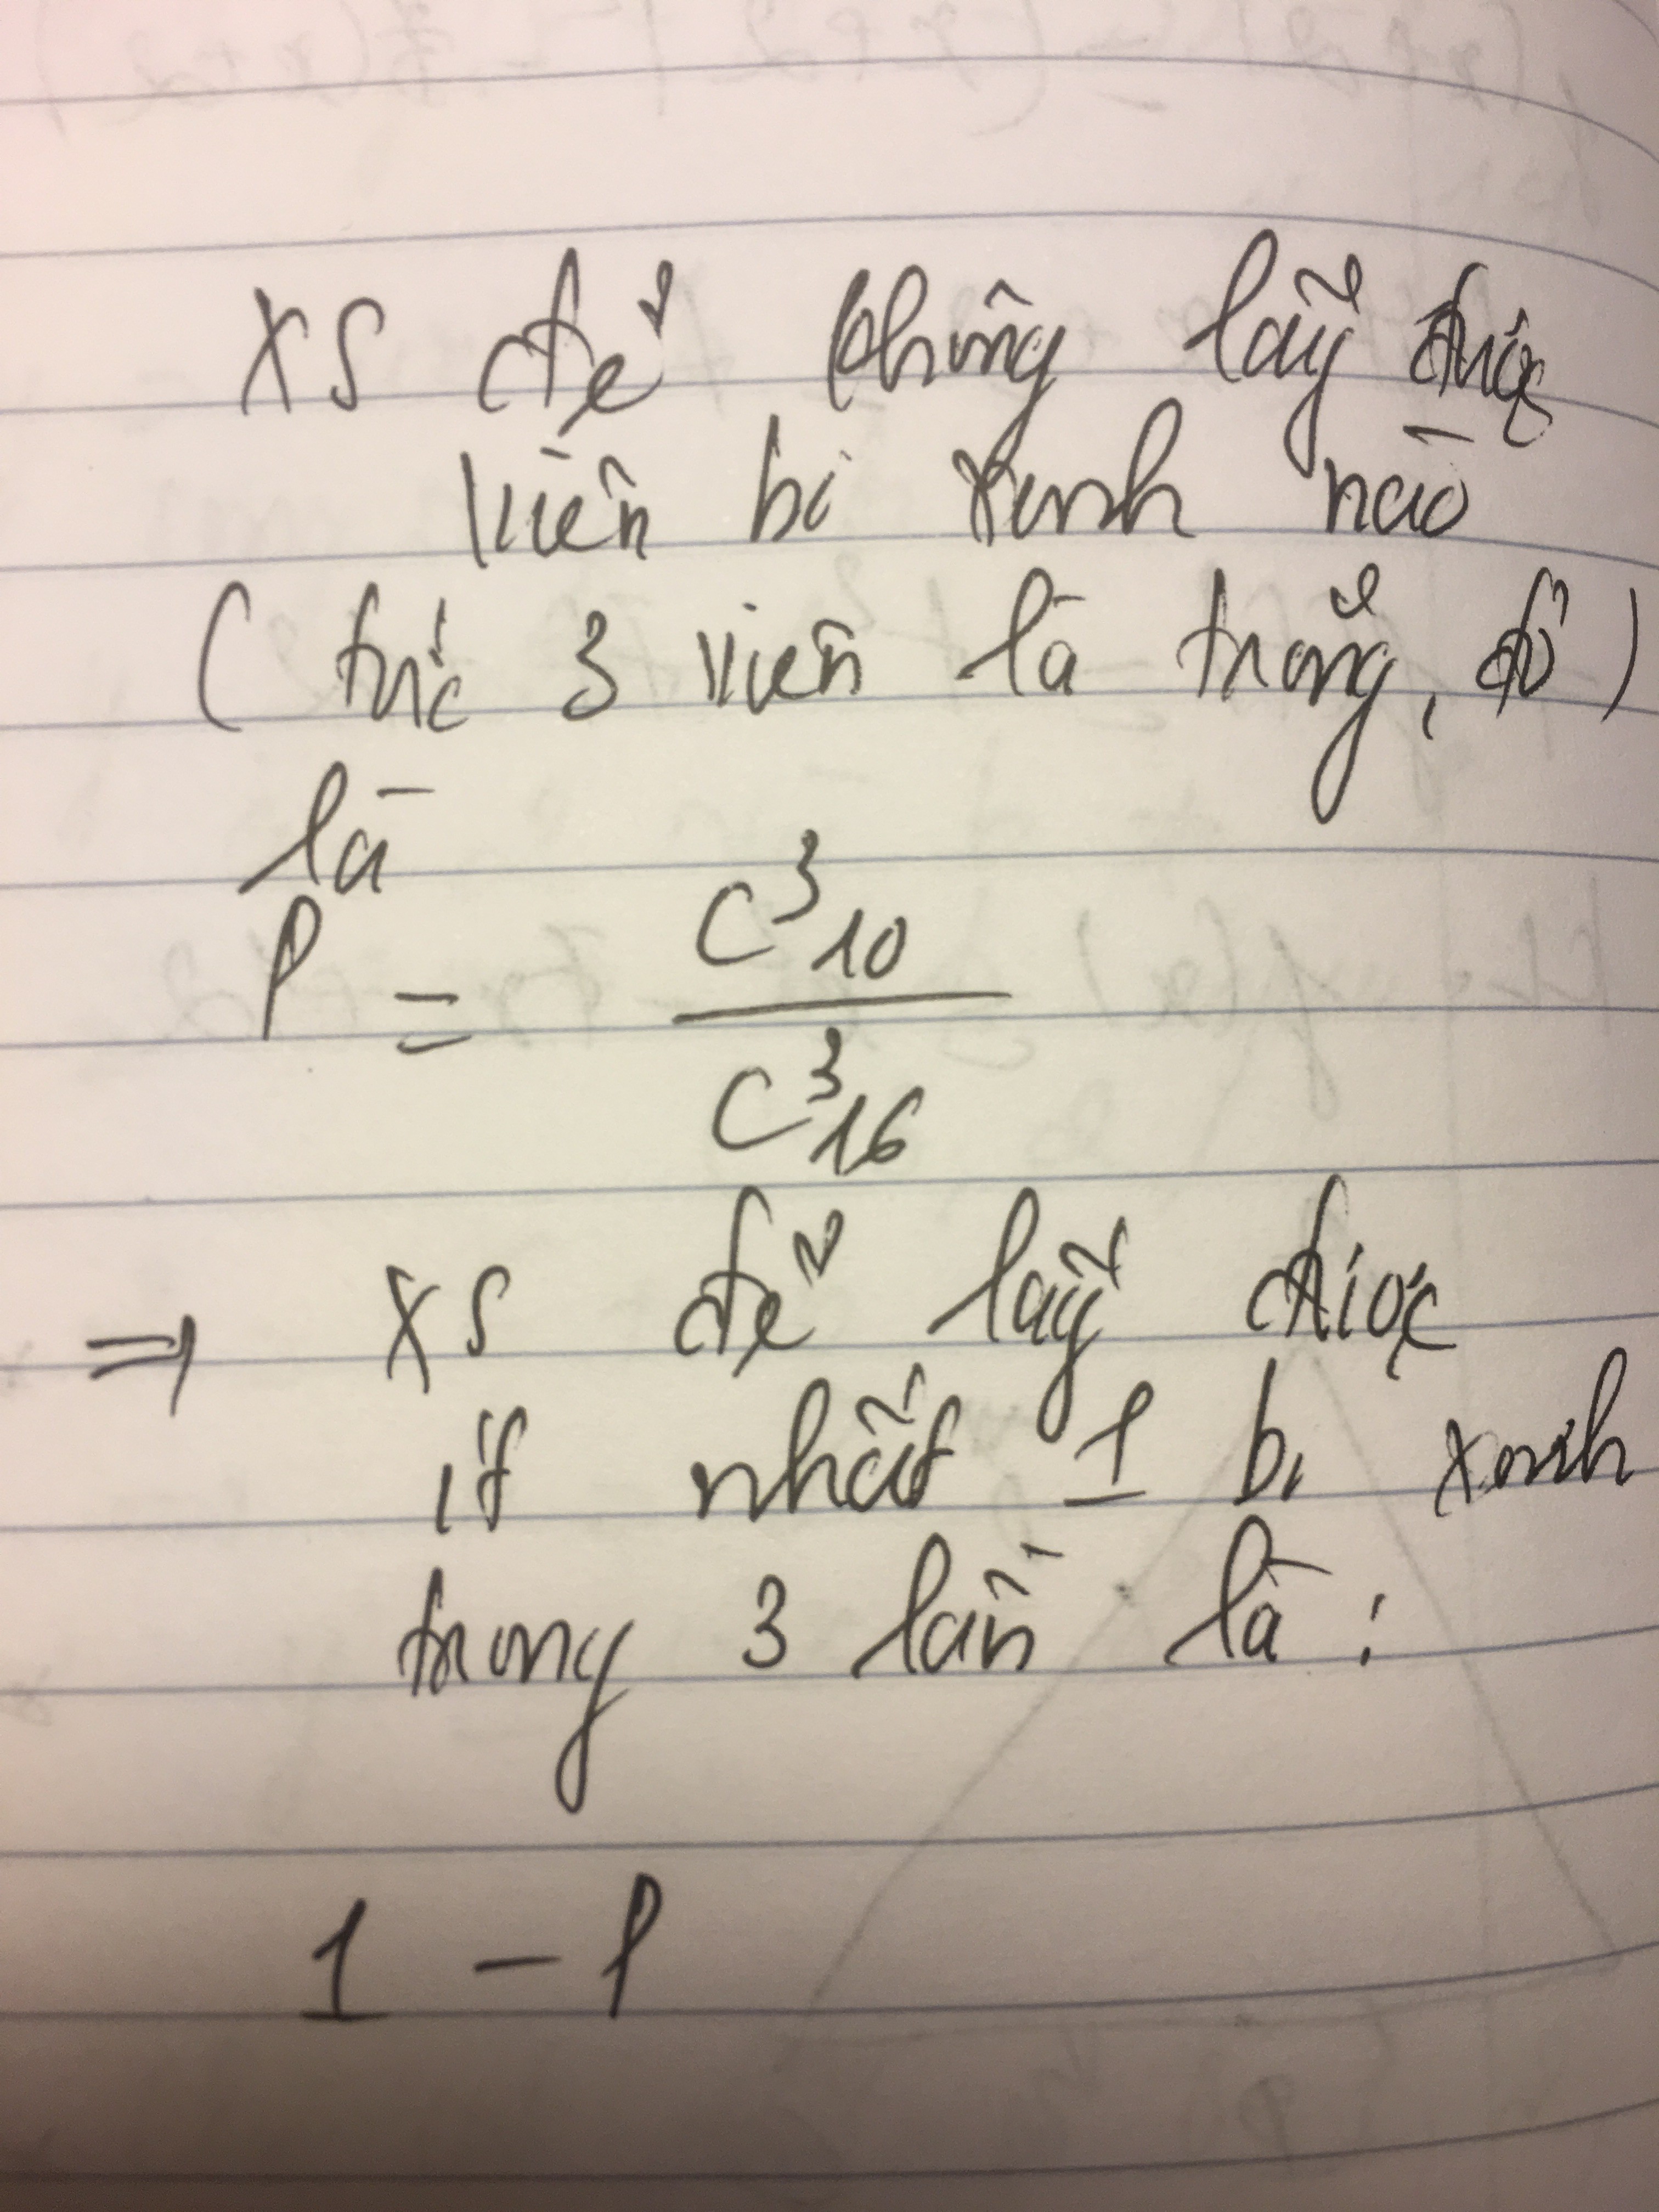 XS để không lấy được
viên bi xanh nào
( tức 3 viên là trắng, đỏ )
là
P = C³10 / C³16
⇒ XS để lấy được
ít nhất 1 bi xanh
trong 3 lần là :
1 - P